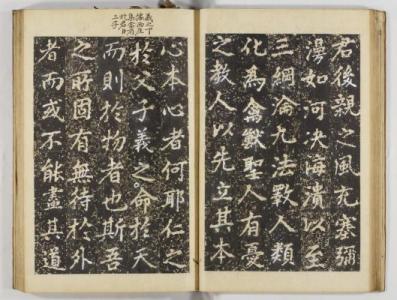 君後親之風充塞彌
湯如河決海潰以至
三綱淪九法斁人類
化為禽獸聖人有憂
之教人以先立其本
心本心者何耶仁之
於父子義之命於天
而則於物者也斯吾
之所固有無待於外
者而或不能盡其道